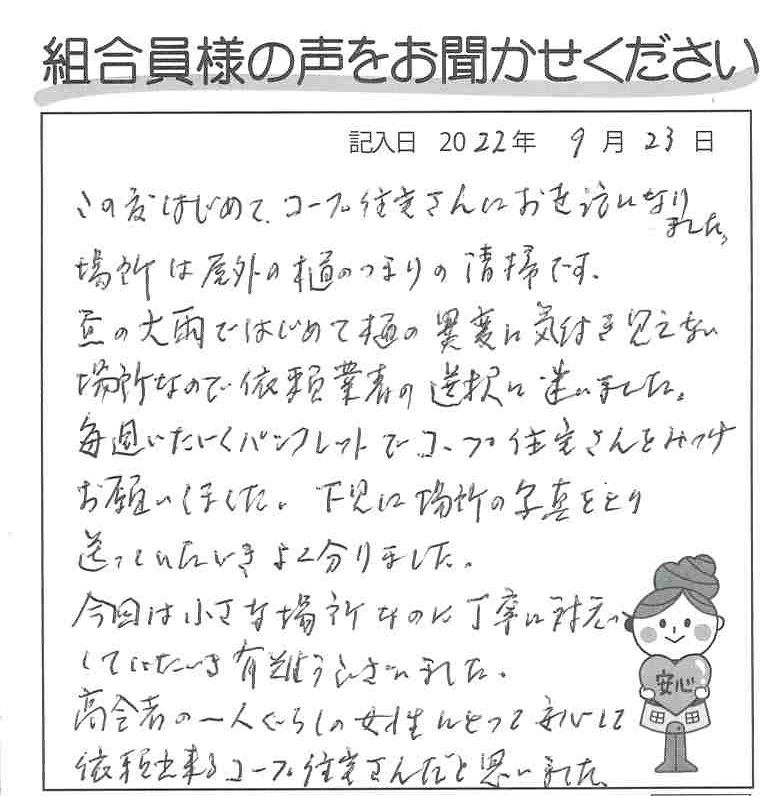 組合員様の声をお聞かせください
記入日 2022年 9月 23日
この度はじめて、コープ住宅さんにお世話になりました。
場所は屋外の樋のつまりの清掃です。
夏の大雨ではじめて樋の異変に気付き見えない
場所なので依頼業者の選択に迷いました。
毎週いただくパンフレットでコープ住宅さんをみつけ
お願いしました。下見に場所の写真をとり
送っていただきよく分りました。
今回は小さな場所なのに丁寧に対応
していただき有難うございました。
高令者の一人ぐらしの女性にとって安心して
依頼出来るコープ住宅さんだと思いました。
安心